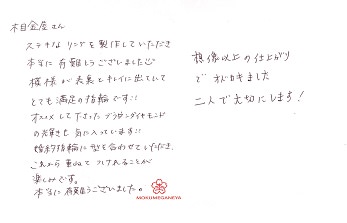 木目金屋さん
ステキなリングを製作していただき
本当に有難うございました
模様が表裏とキレイに出ていて
とても満足の指輪です!!
オススメして下さったブラウンダイヤモンド
の輝きも気に入っています!!
婚約指輪に形を合わせていただき、
これから重ねてつけれることが
楽しみです。
本当に有難うございました。
想像以上の仕上がり
でオドロキました
二人で大切にします!
MOKUMEGANEYA